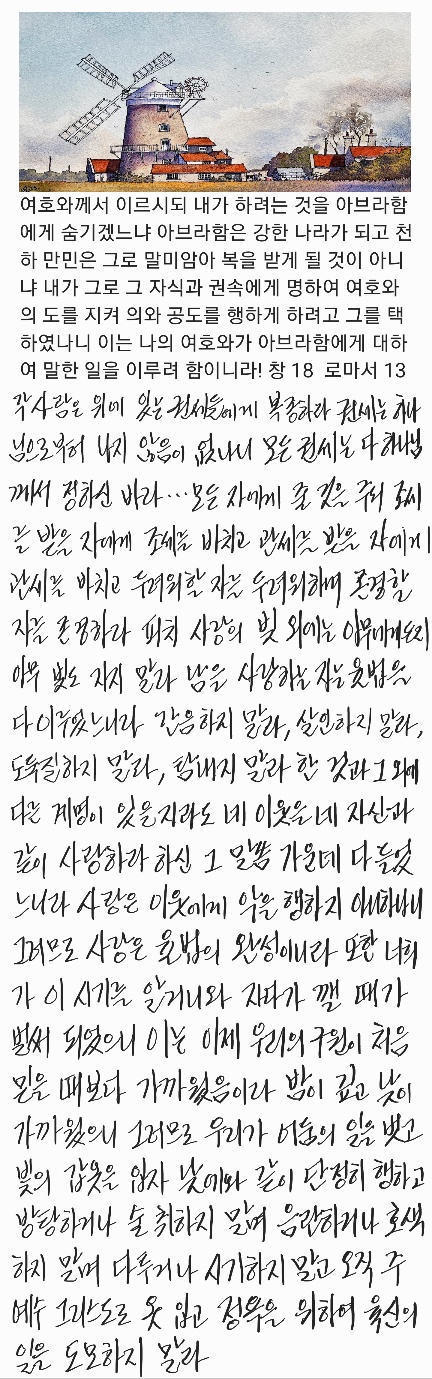 여호와께서 이르시되 내가 하려는 것을 아브라함
에게 숨기겠느냐 아브라함은 강한 나라가 되고 천
하 만민은 그로 말미암아 복을 받게 될 것이 아니
냐 내가 그로 그 자식과 권속에게 명하여 여호와
의 도를 지켜 의와 공도를 행하게 하려고 그를 택
하였나니 이는 나의 여호와가 아브라함에게 대하
여 말한 일을 이루려 함이니라! 창 18 로마서 13
각 사람은 위에 있는 권세들에게 복종하라 권세는 하나
님으로부터 나지 않음이 없나니 모든 권세는 다 하나님
께서 정하신 바라…모든 자에게 줄 것을 주되 조세
를 받을 자에게 조세를 바치고 관세를 받을 자에게
관세를 바치고 두려워할 자를 두려워하며 존경할
자를 존경하라 피차 사랑의 빚 외에는 아무에게든지
아무 빚도 지지 말라 남을 사랑하는 자는 율법을
다 이루었느니라 간음하지 말라, 살인하지 말라,
도둑질하지 말라, 탐내지 말라 한 것과 그 외에
다른 계명이 있을지라도 네 이웃을 네 자신과
같이 사랑하라 하신 그 말씀 가운데 다 들었
느니라 사랑은 이웃에게 악을 행하지 아니하나니
그러므로 사랑은 율법의 완성이니라 또한 너희
가 이 시기를 알거니와 자다가 깰 때가
벌써 되었으니 이는 이제 우리의 구원이 처음
믿을 때보다 가까웠음이라 밤이 깊고 낮이
가까웠으니 그러므로 우리가 어둠의 일을 벗고
빛의 갑옷을 입자 낮에와 같이 단정히 행하고
방탕하거나 술 취하지 말며 음란하거나 호색
하지 말며 다투거나 시기하지 말고 오직 주
예수 그리스도로 옷 입고 정욕을 위하여 육신의
일을 도모하지 말라